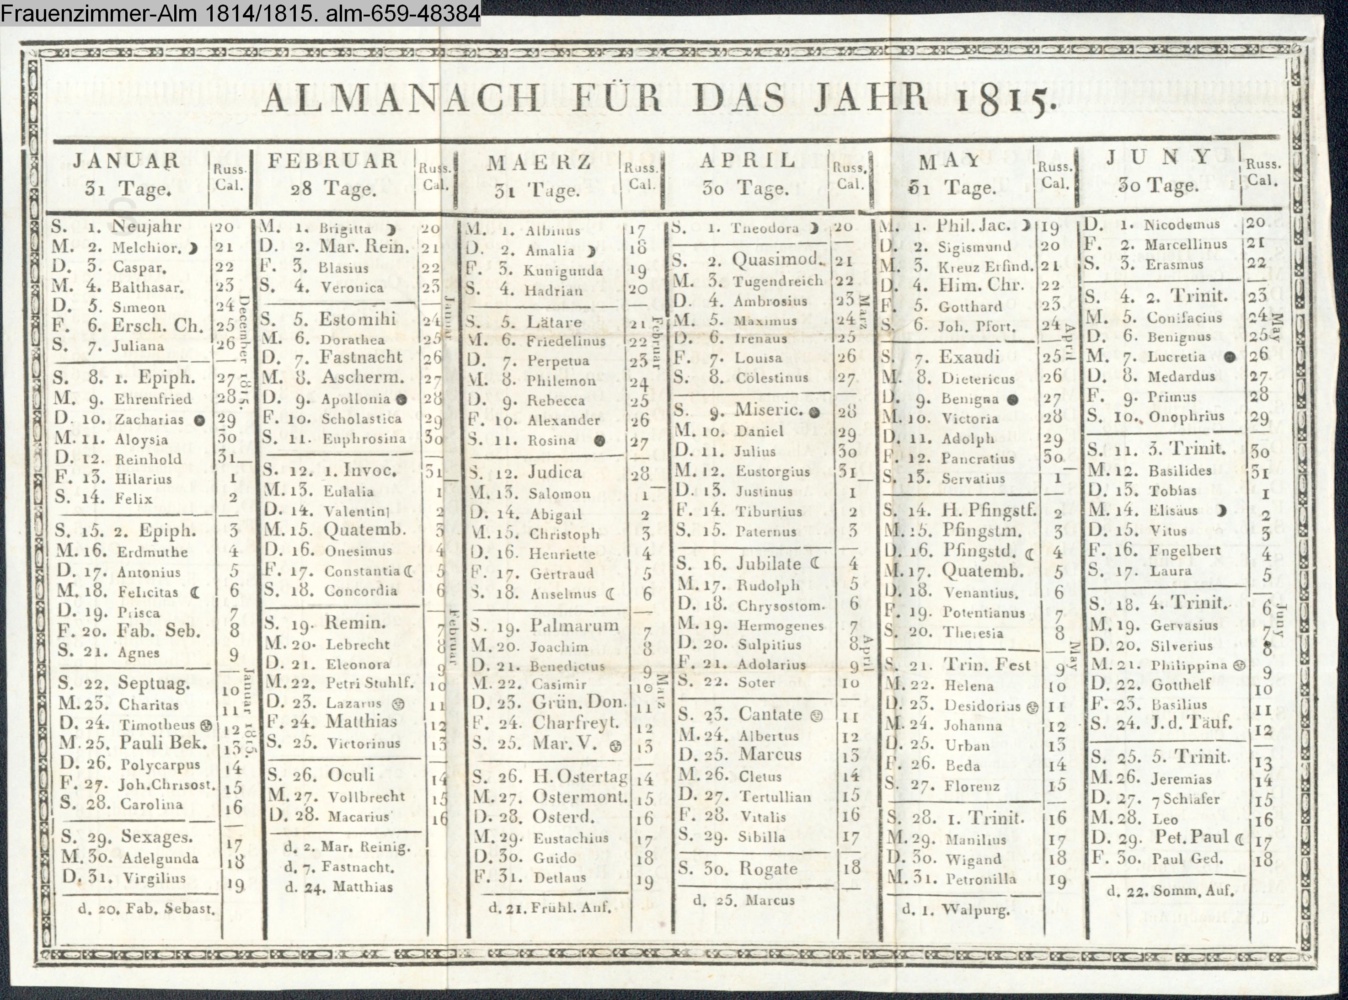 Frauenzimmer-Alm 1814/1815. alm-659-48384
ALMANACH FÜR DAS JAHR 1815.
JANUAR
31 Tage.
Russ. Cal.
S. 1. Neujahr 20
M. 2. Melchior. ☽ 21
D. 3. Caspar. 22
M. 4. Balthasar. 23
D. 5. Simeon 24
F. 6. Ersch. Ch. 25
S. 7. Juliana 26
S. 8. 1. Epiph. 27
M. 9. Ehrenfried 28
D. 10. Zacharias ● 29
M. 11. Aloysia 30
D. 12. Reinhold 31
F. 13. Hilarius 1
S. 14. Felix 2
S. 15. 2. Epiph. 3
M. 16. Erdmuthe 4
D. 17. Antonius 5
M. 18. Felicitas ☾ 6
D. 19. Prisca 7
F. 20. Fab. Seb. 8
S. 21. Agnes 9
S. 22. Septuag. 10
M. 23. Charitas 11
D. 24. Timotheus 12
M. 25. Pauli Bek. 13
D. 26. Polycarpus 14
F. 27. Joh. Chrisost. 15
S. 28. Carolina 16
S. 29. Sexages. 17
M. 30. Adelgunda 18
D. 31. Virgilius 19
d. 20. Fab. Sebast.
December 1815.
Januar 1815.
FEBRUAR
28 Tage.
Russ. Cal.
M. 1. Brigitta ☽ 20
D. 2. Mar. Rein. 21
F. 3. Blasius 22
S. 4. Veronica 23
S. 5. Estomihi 24
M. 6. Dorathea 25
D. 7. Fastnacht 26
M. 8. Ascherm. 27
D. 9. Apollonia ● 28
F. 10. Scholastica 29
S. 11. Euphrosina 30
S. 12. 1. Invoc. 31
M. 13. Eulalia 1
D. 14. Valentini 2
M. 15. Quatemb. 3
D. 16. Onesimus 4
F. 17. Constantia ☾ 5
S. 18. Concordia 6
S. 19. Remin. 7
M. 20. Lebrecht 8
D. 21. Eleonora 9
M. 22. Petri Stuhlf. 10
D. 23. Lazarus 11
F. 24. Matthias 12
S. 25. Victorinus 13
S. 26. Oculi 14
M. 27. Vollbrecht 15
D. 28. Macarius 16
d. 2. Mar. Reinig.
d. 7. Fastnacht.
d. 24. Matthias
Januar
Februar
MAERZ
31 Tage.
Russ. Cal.
M. 1. Albinus 17
D. 2. Amalia ☽ 18
F. 3. Kunigunda 19
S. 4. Hadrian 20
S. 5. Lätare 21
M. 6. Friedelinus 22
D. 7. Perpetua 23
M. 8. Philemon 24
D. 9. Rebecca 25
F. 10. Alexander 26
S. 11. Rosina ● 27
S. 12. Judica 28
M. 13. Salomon 1
D. 14. Abigail 2
M. 15. Christoph 3
D. 16. Henriette 4
F. 17. Gertraud 5
S. 18. Anselmus ☾ 6
S. 19. Palmarum 7
M. 20. Joachim 8
D. 21. Benedictus 9
M. 22. Casimir 10
D. 23. Grün. Don. 11
F. 24. Charfreyt. 12
S. 25. Mar. V. 13
S. 26. H. Ostertag 14
M. 27. Ostermont. 15
D. 28. Osterd. 16
M. 29. Eustachius 17
D. 30. Guido 18
F. 31. Detlaus 19
d. 21. Frühl. Anf.
Februar
Marz
APRIL
30 Tage.
Russ. Cal.
S. 1. Theodora ☽ 20
S. 2. Quasimod. 21
M. 3. Tugendreich 22
D. 4. Ambrosius 23
M. 5. Maximus 24
D. 6. Irenaus 25
F. 7. Louisa 26
S. 8. Cölestinus 27
S. 9. Miseric. ● 28
M. 10. Daniel 29
D. 11. Julius 30
M. 12. Eustorgius 31
D. 13. Justinus 1
F. 14. Tiburtius 2
S. 15. Paternus 3
S. 16. Jubilate ☾ 4
M. 17. Rudolph 5
D. 18. Chrysostom. 6
M. 19. Hermogenes 7
D. 20. Sulpitius 8
F. 21. Adolarius 9
S. 22. Soter 10
S. 23. Cantate 11
M. 24. Albertus 12
D. 25. Marcus 13
M. 26. Cletus 14
D. 27. Tertullian 15
F. 28. Vitalis 16
S. 29. Sibilla 17
S. 30. Rogate 18
d. 25. Marcus
Marz
April
MAY
31 Tage.
Russ. Cal.
M. 1. Phil. Jac. ☽ 19
D. 2. Sigismund 20
M. 3. Kreuz Erfind. 21
D. 4. Him. Chr. 22
F. 5. Gotthard 23
S. 6. Joh. Pfort. 24
S. 7. Exaudi 25
M. 8. Dietericus 26
D. 9. Benigna ● 27
M. 10. Victoria 28
D. 11. Adolph 29
F. 12. Pancratius 30
S. 13. Servatius 1
S. 14. H. Pfingstf. 2
M. 15. Pfingstm. 3
D. 16. Pfingstd. ☾ 4
M. 17. Quatemb. 5
D. 18. Venantius. 6
F. 19. Potentianus 7
S. 20. Theresia 8
S. 21. Trin. Fest 9
M. 22. Helena 10
D. 23. Desidorius 11
M. 24. Johanna 12
D. 25. Urban 13
F. 26. Beda 14
S. 27. Florenz 15
S. 28. 1. Trinit. 16
M. 29. Manilius 17
D. 30. Wigand 18
M. 31. Petronilla 19
d. 1. Walpurg.
April
May
JUNY
30 Tage.
Russ. Cal.
D. 1. Nicodemus 20
F. 2. Marcellinus 21
S. 3. Erasmus 22
S. 4. 2. Trinit. 23
M. 5. Conifacius 24
D. 6. Benignus 25
M. 7. Lucretia ● 26
D. 8. Medardus 27
F. 9. Primus 28
S. 10. Onophrius 29
S. 11. 3. Trinit. 30
M. 12. Basilides 31
D. 13. Tobias 1
M. 14. Elisäus ☽ 2
D. 15. Vitus 3
F. 16. Engelbert 4
S. 17. Laura 5
S. 18. 4. Trinit. 6
M. 19. Gervasius 7
D. 20. Silverius 8
M. 21. Philippina 9
D. 22. Gotthelf 10
F. 23. Basilius 11
S. 24. J. d. Täuf. 12
S. 25. 5. Trinit. 13
M. 26. Jeremias 14
D. 27. 7 Schläfer 15
M. 28. Leo 16
D. 29. Pet. Paul ☾ 17
F. 30. Paul Ged. 18
d. 22. Somm. Auf.
May
Juny